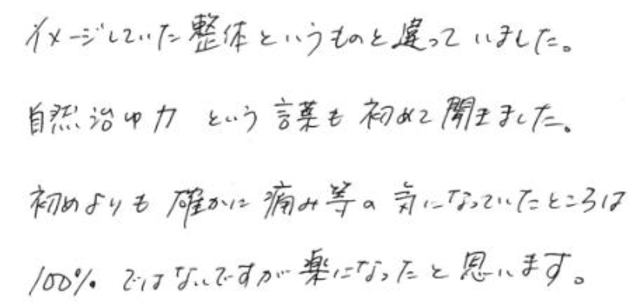 イメージしていた整体というものと違っていました。
自然治ゆ力 という言葉も初めて聞きました。
初めよりも確かに痛み等の気になっていたところは
100%ではないですが楽になったと思います。